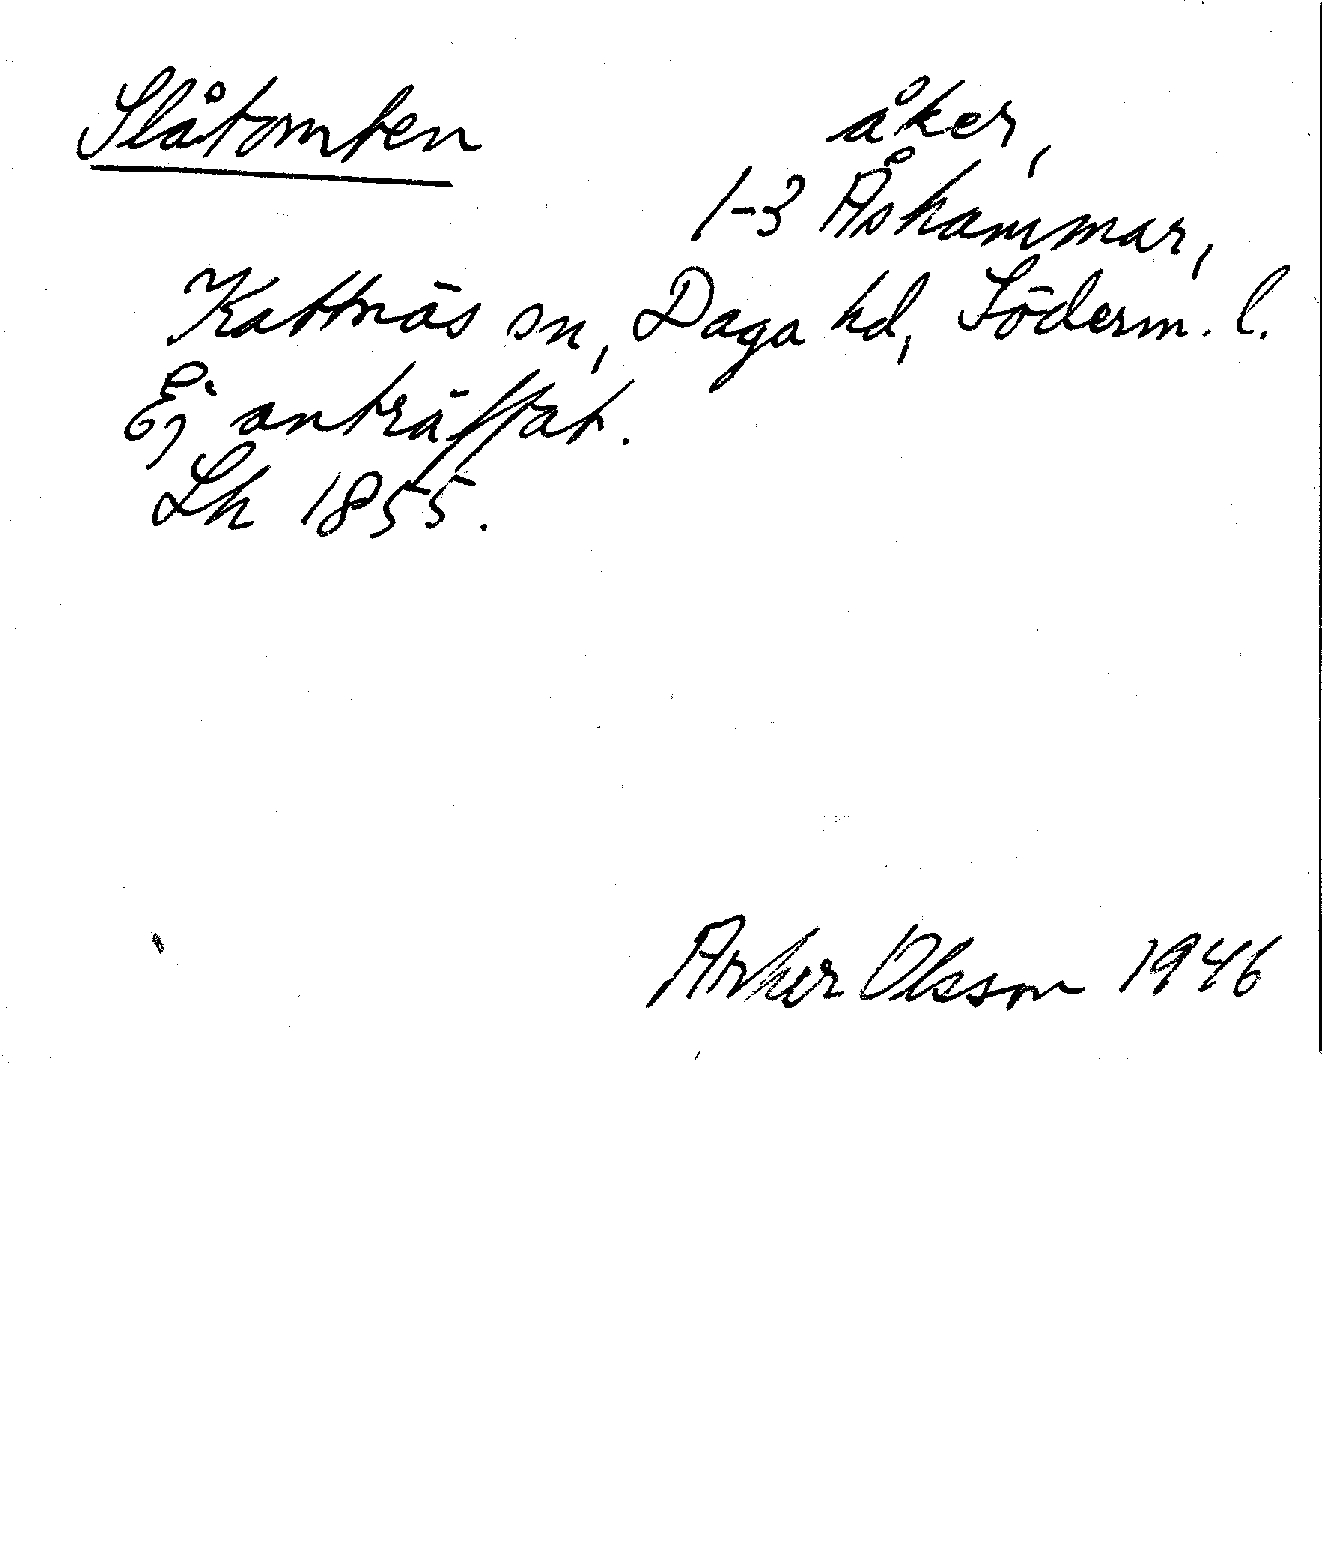 Slåtomten åker,
1-3 Åshammar,
Kattnäs sn, Daga hd, Söderm. l.
Ej anträffat.
Lh 1855.
Olsson 1946